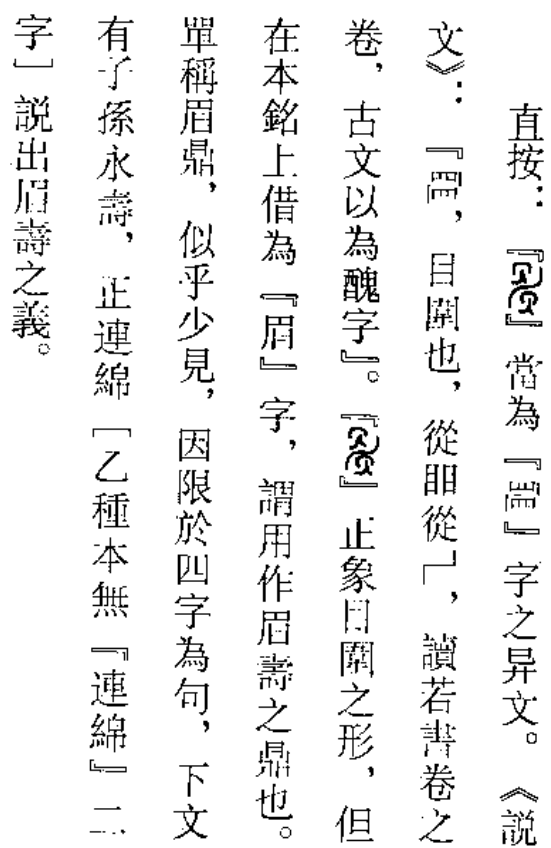 直按：『』當為『』字之异文。《説
文》：『，目圍也，從䀠從，讀若書卷之
卷，古文以為醜字』。『』正象目圍之形，但
在本銘上借為『眉』字，謂用作眉壽之鼎也。
單稱眉鼎，似乎少見，因限於四字為句，下文
有子孫永壽，正連綿［乙種本無『連綿』二
字］説出眉壽之義。